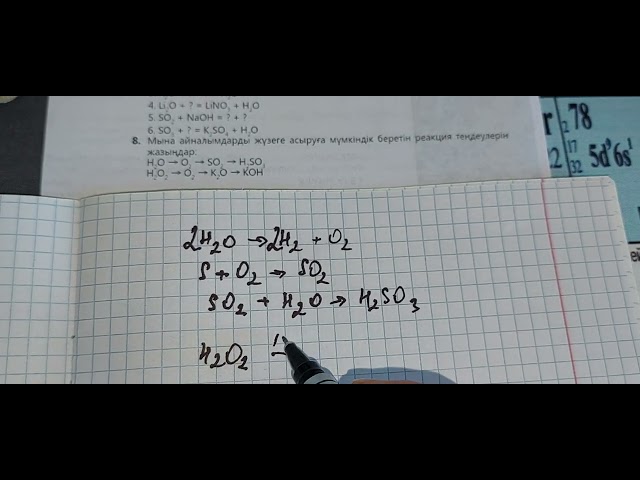 4. Li₂O + ? = LiNO₃ + H₂O
5. SO₂ + NaOH = ? + ?
6. SO₃ + ? = K₂SO₄ + H₂O
8. Мына айналымдарды жүзеге асыруға мүмкіндік беретін реакция теңдеулерін
жазыңдар:
H₂O → O₂ → SO₂ → H₂SO₃
H₂O₂ → O₂ → K₂O → KOH
78
17
32
5d⁹6s¹
2H₂O → 2H₂ + O₂
S + O₂ → SO₂
SO₂ + H₂O → H₂SO₃
H₂O₂